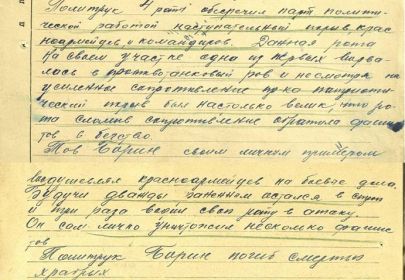 Политрук 4 роты обеспечил парт. полити-
ческой работой наступательный порыв крас
ноармейцев и командиров. Данная рота
на своем участке одна из первых ворва-
лась в противотанковый ров и несмотря на
усиленное сопротивление пр-ка патриоти-
ческий порыв был настолько велик, что ро-
та сломив сопротивление обратила фашис
тов в бегство.
Тов Барин своим личным примером
воодушевлял красноармейцев на боевые дела.
Будучи дважды раненным остался в строю
и три раза водил свою роту в атаку.
Он сам лично уничтожил несколько фашис
тов
Политрук Барин погиб смертью
храбрых